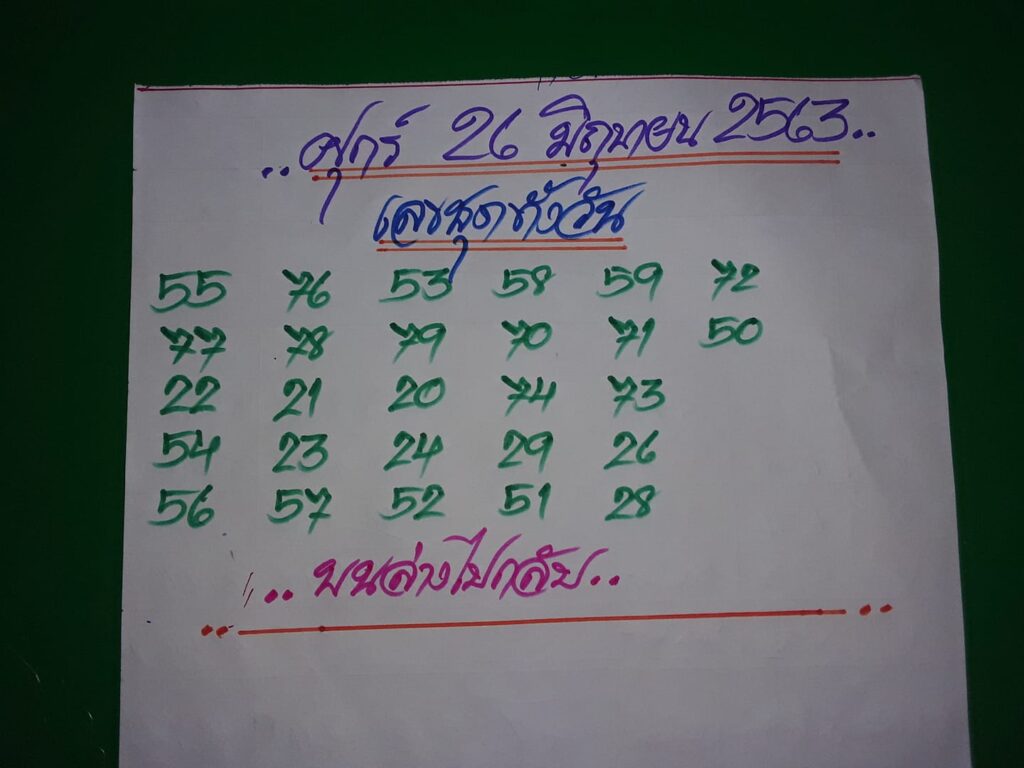 ..ศุกร์ 26 มิถุนายน 2563..
เลขชุดทั้งวัน
55 76 53 58 59 72
77 78 79 70 71 50
22 21 20 74 73
54 23 24 29 26
56 57 52 51 28
..บนล่างไปกลับ..